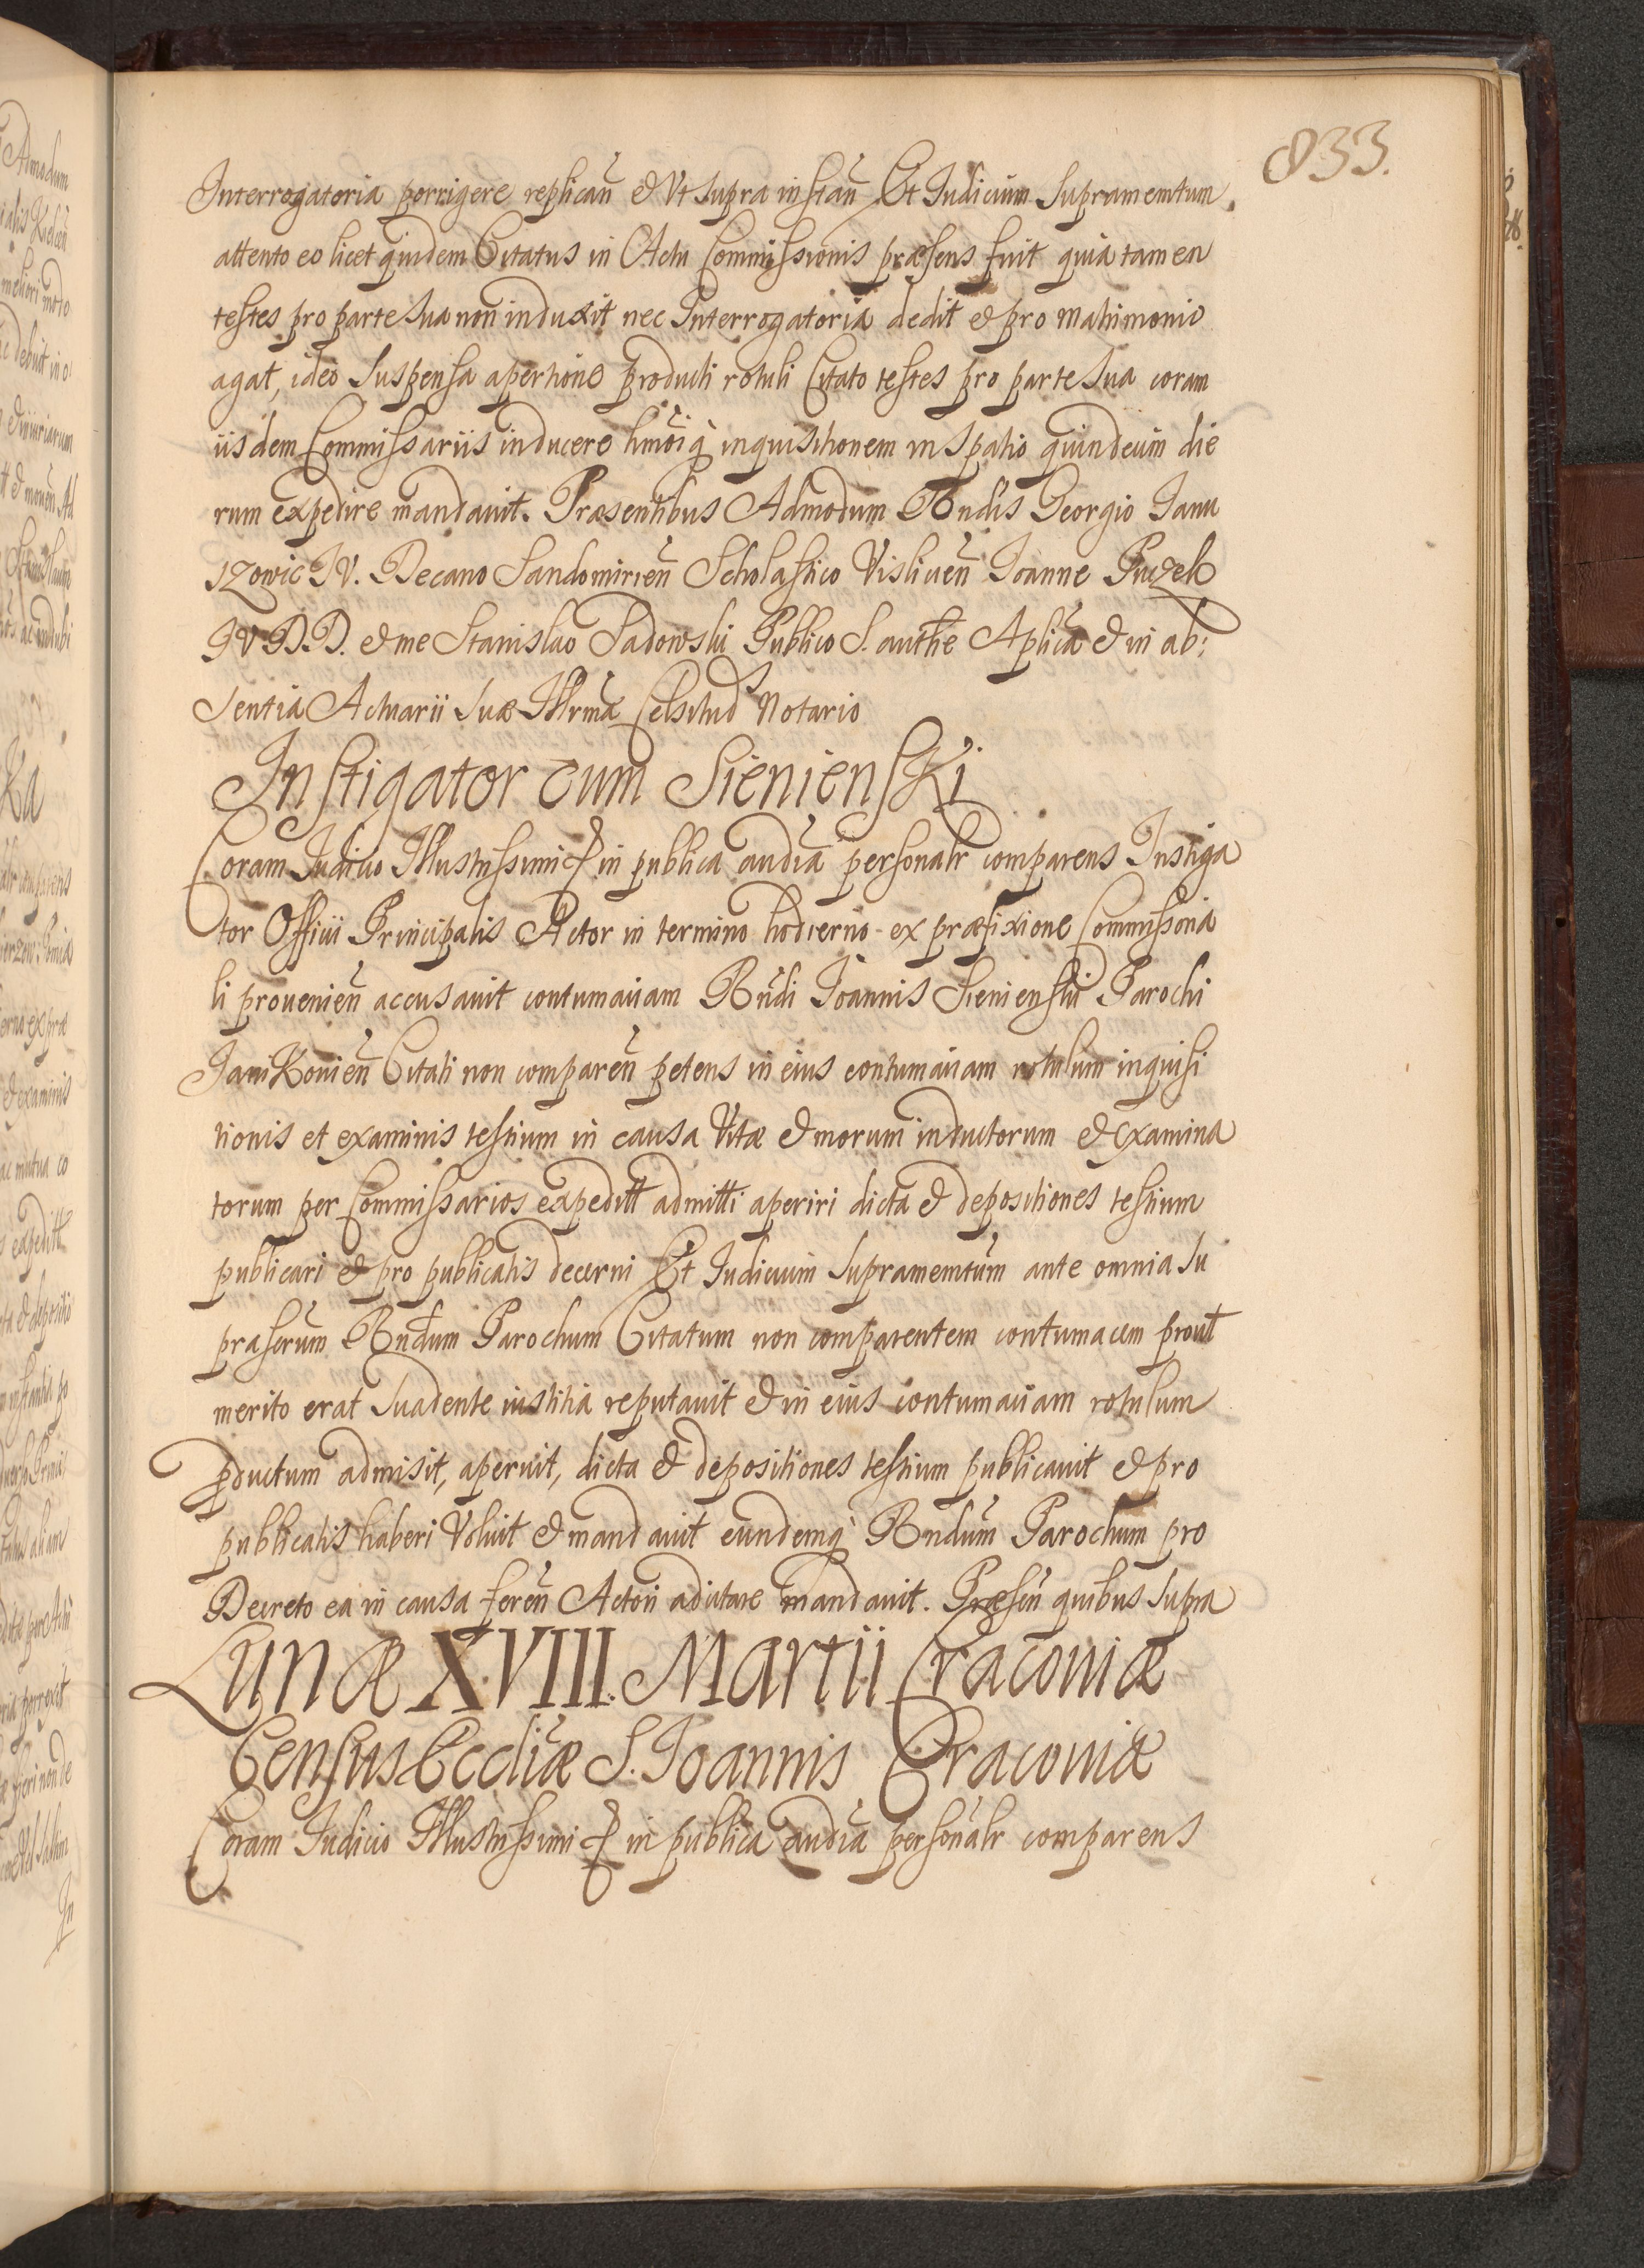 833.
Interrogatoria porrigere replican̄ & Vt supra instan̄ Et Iudicium Supramemtum
attento eo licet quidem Citatus in Actu Commissionis præsens fuit quia tamen
testes pro parte sua non induxit nec Interrogatoria dedit & pro matrimonio
agat, ideo suspensa apertione producti rotuli Citato testes pro parte sua coram
iisdem Commissariis inducere hmōi q̀ inquisitionem in spatio quindecim die
rum expedire mandauit. Præsentibus Admodum Rndis Georgio Ianu
szowic IV. Decano Sandomirien̄ Scholastico Visliceñ Ioanne Puczek
IVDD. & me Stanislao Sadowski Publico S. authē Aplīca & in ab:
sentia Actuarii suæ Illrmæ Celsitud Notario
Instigator cum Sienienski
Coram Iudicio Illustrissimi & in publica audīa personalr comparens Instiga
tor Officii Principalis Actor in termino hodierno ex præfixione Commissoria
li prouenien̄ accusauit contumaciam Rndi Ioannis Sienienski Parochi
Ianikouien̄ Citati non comparen̄ petens in eius contumaciam rotulum inquisi
tionis et examinis testium in causa Vitæ & morum inductorum & examina
torum per Commissarios expeditt admitti aperiri dicta & depositiones testium
publicari & pro publicatis decerni Et Iudicium supramemtum ante omnia su
prascrum Rndum Parochum Citatum non comparentem contumacem prout
merito erat suadente iustitia reputauit & in eius contumaciam rotulum
pductum admisit, aperuit, dicta & depositiones testium publicauit & pro
publicatis haberi Voluit & mandauit eundemq̀ Rndum Parochum pro
Decreto ea in causa feren̄ Actori adcitare mandauit. Præsen̄ quibus supra
Lunæ XVIII. Martii Cracouiæ
Census Eccliæ S. Ioannis Cracouiæ
Coram Iudicio Illustrissimi & in publica audīa personalr comparens